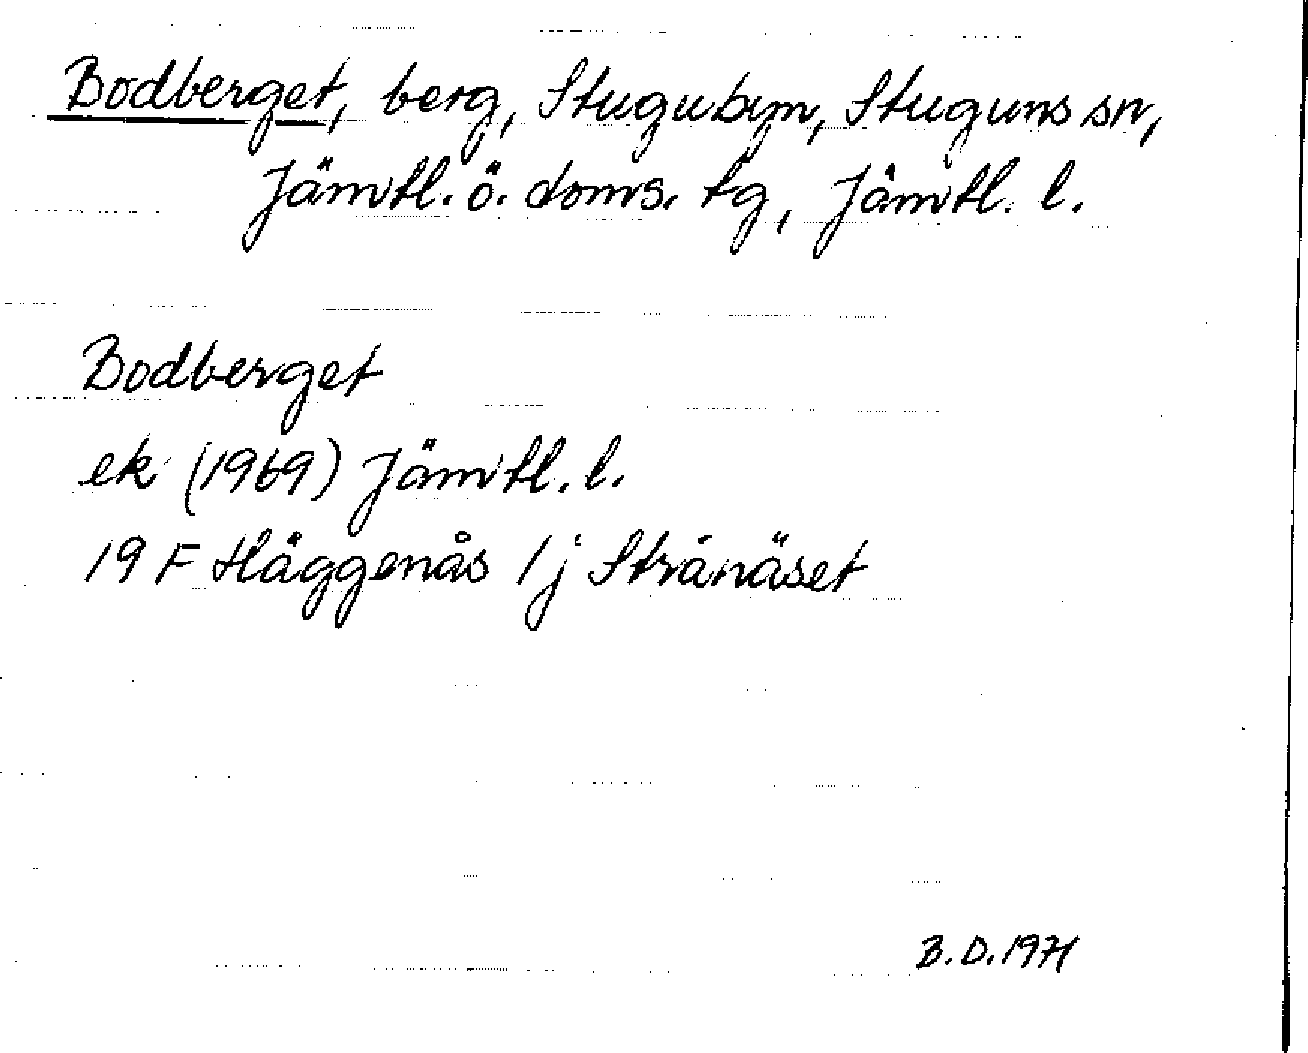 Bodberget, berg, Stugubyn, Stuguns sn,
Jämtl. ö. doms. tg, Jämtl. l.
Bodberget
ek (1969) Jämtl. l.
19 F Häggenås 1 j Strånäset
B.D. 1971